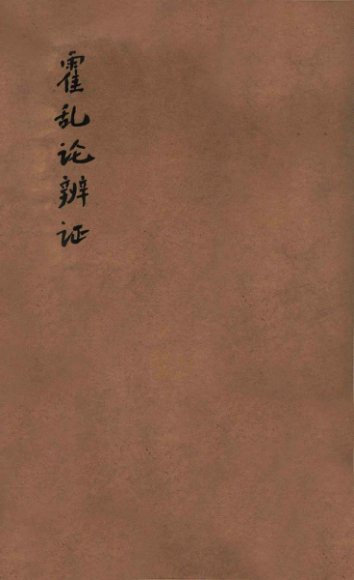 霍乱论辨证